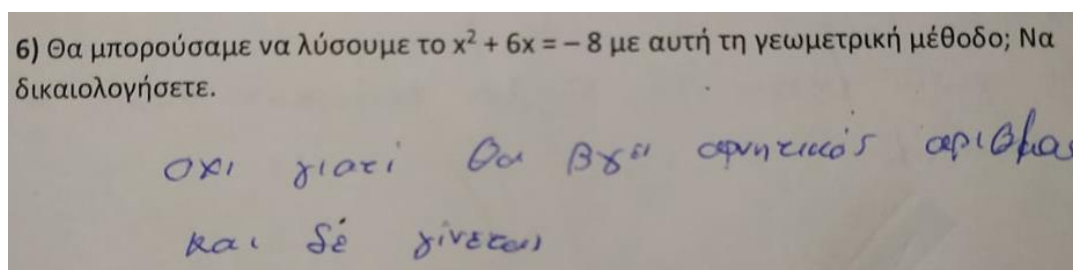 6) Θα μπορούσαμε να λύσουμε το x² + 6x = – 8 με αυτή τη γεωμετρική μέθοδο; Να
δικαιολογήσετε.
οχι γιατί θα βγεί αρνητικός αριθμος
και δέ γίνεται